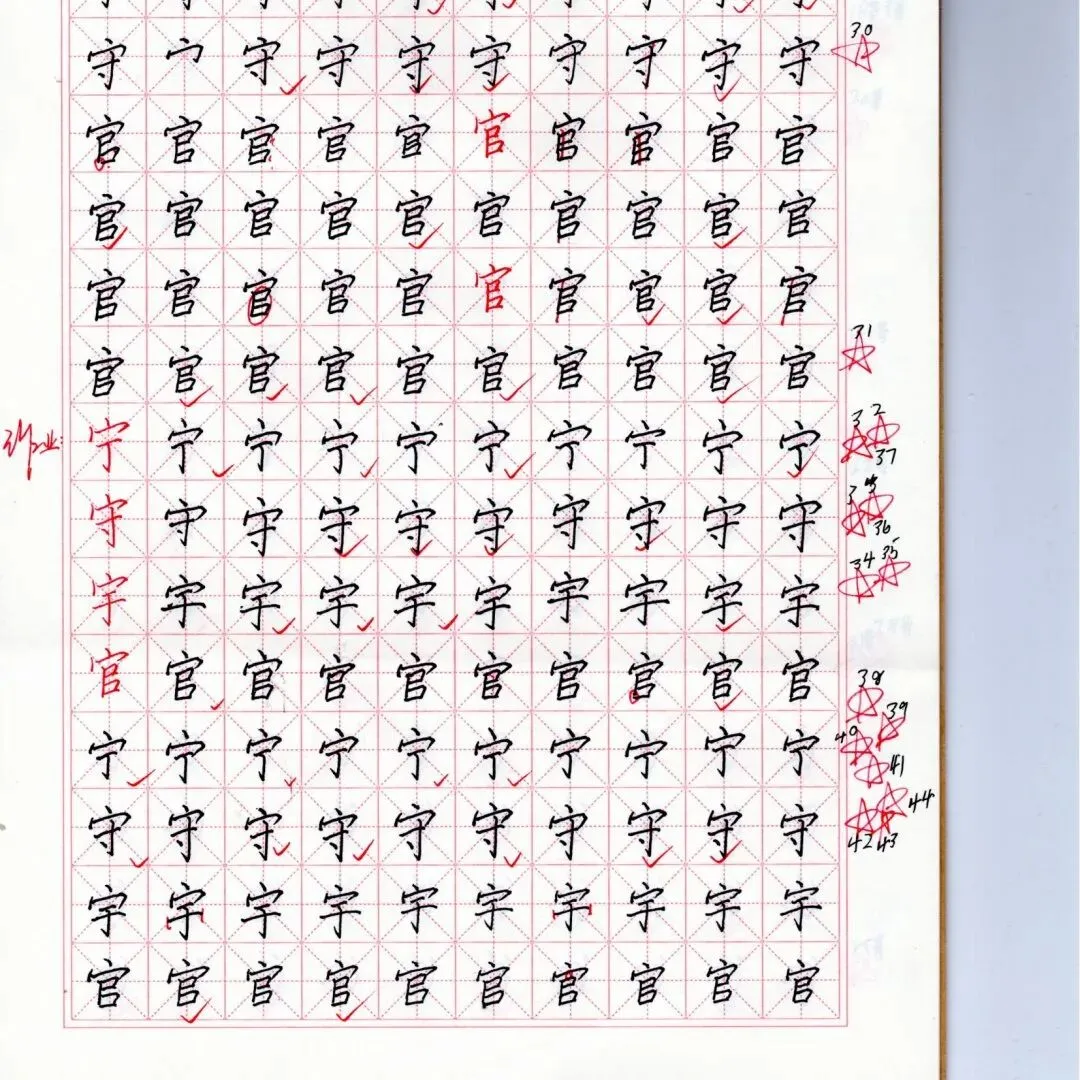 守宀守守守守守守守守 30
官官官官官官官官官官
官官官官官官官官官官
官官官官官官官官官官
官官官官官官官官官官 31
作业: 宁宁宁宁宁宁宁宁宁宁 32 37
守守守守守守守守守守 36
宇宇宇宇宇宇宇宇宇宇 34 35
官官官官官官官官官官 38 39
宁宁宁宁宁宁宁宁宁宁 40 41
守守守守守守守守守守 42 43 44
宇宇宇宇宇宇宇宇宇宇
官官官官官官官官官官